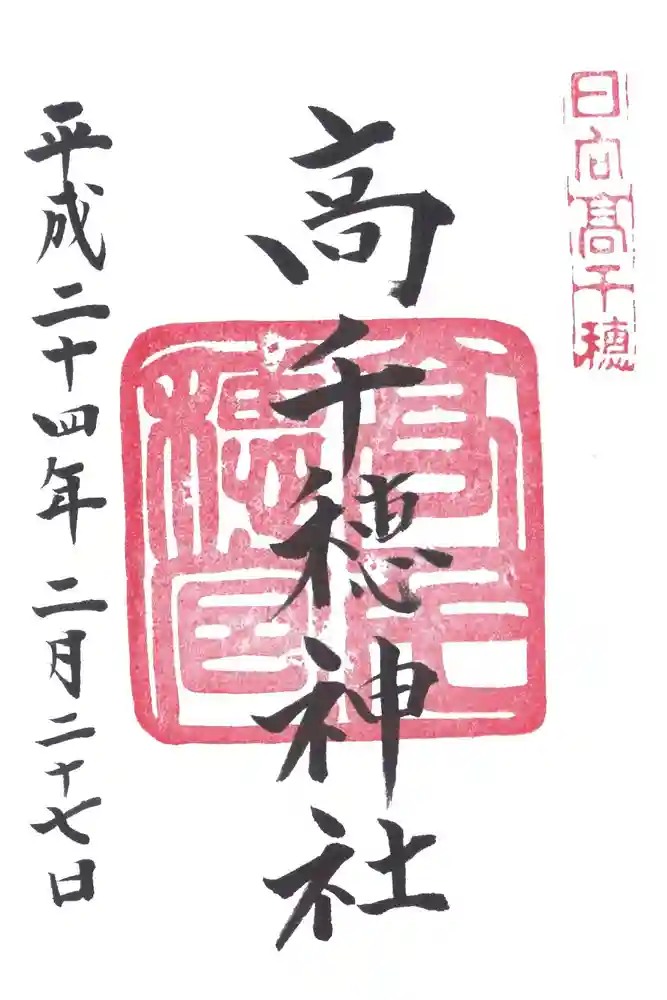 日向高千穂
高千穂神社
平成二十四年二月二十七日